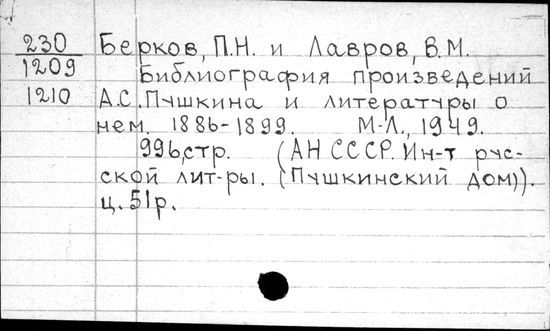 230 Берков, П.Н. и Лавров, В.М.
1209 Библиография произведений
1210 А.С. Пушкина и литературы о
нем. 1886-1899. М-Л., 1949.
996,стр. (АН СССР. Ин-т рус-
ской лит-ры. (Пушкинский дом)).
ц. 51р.